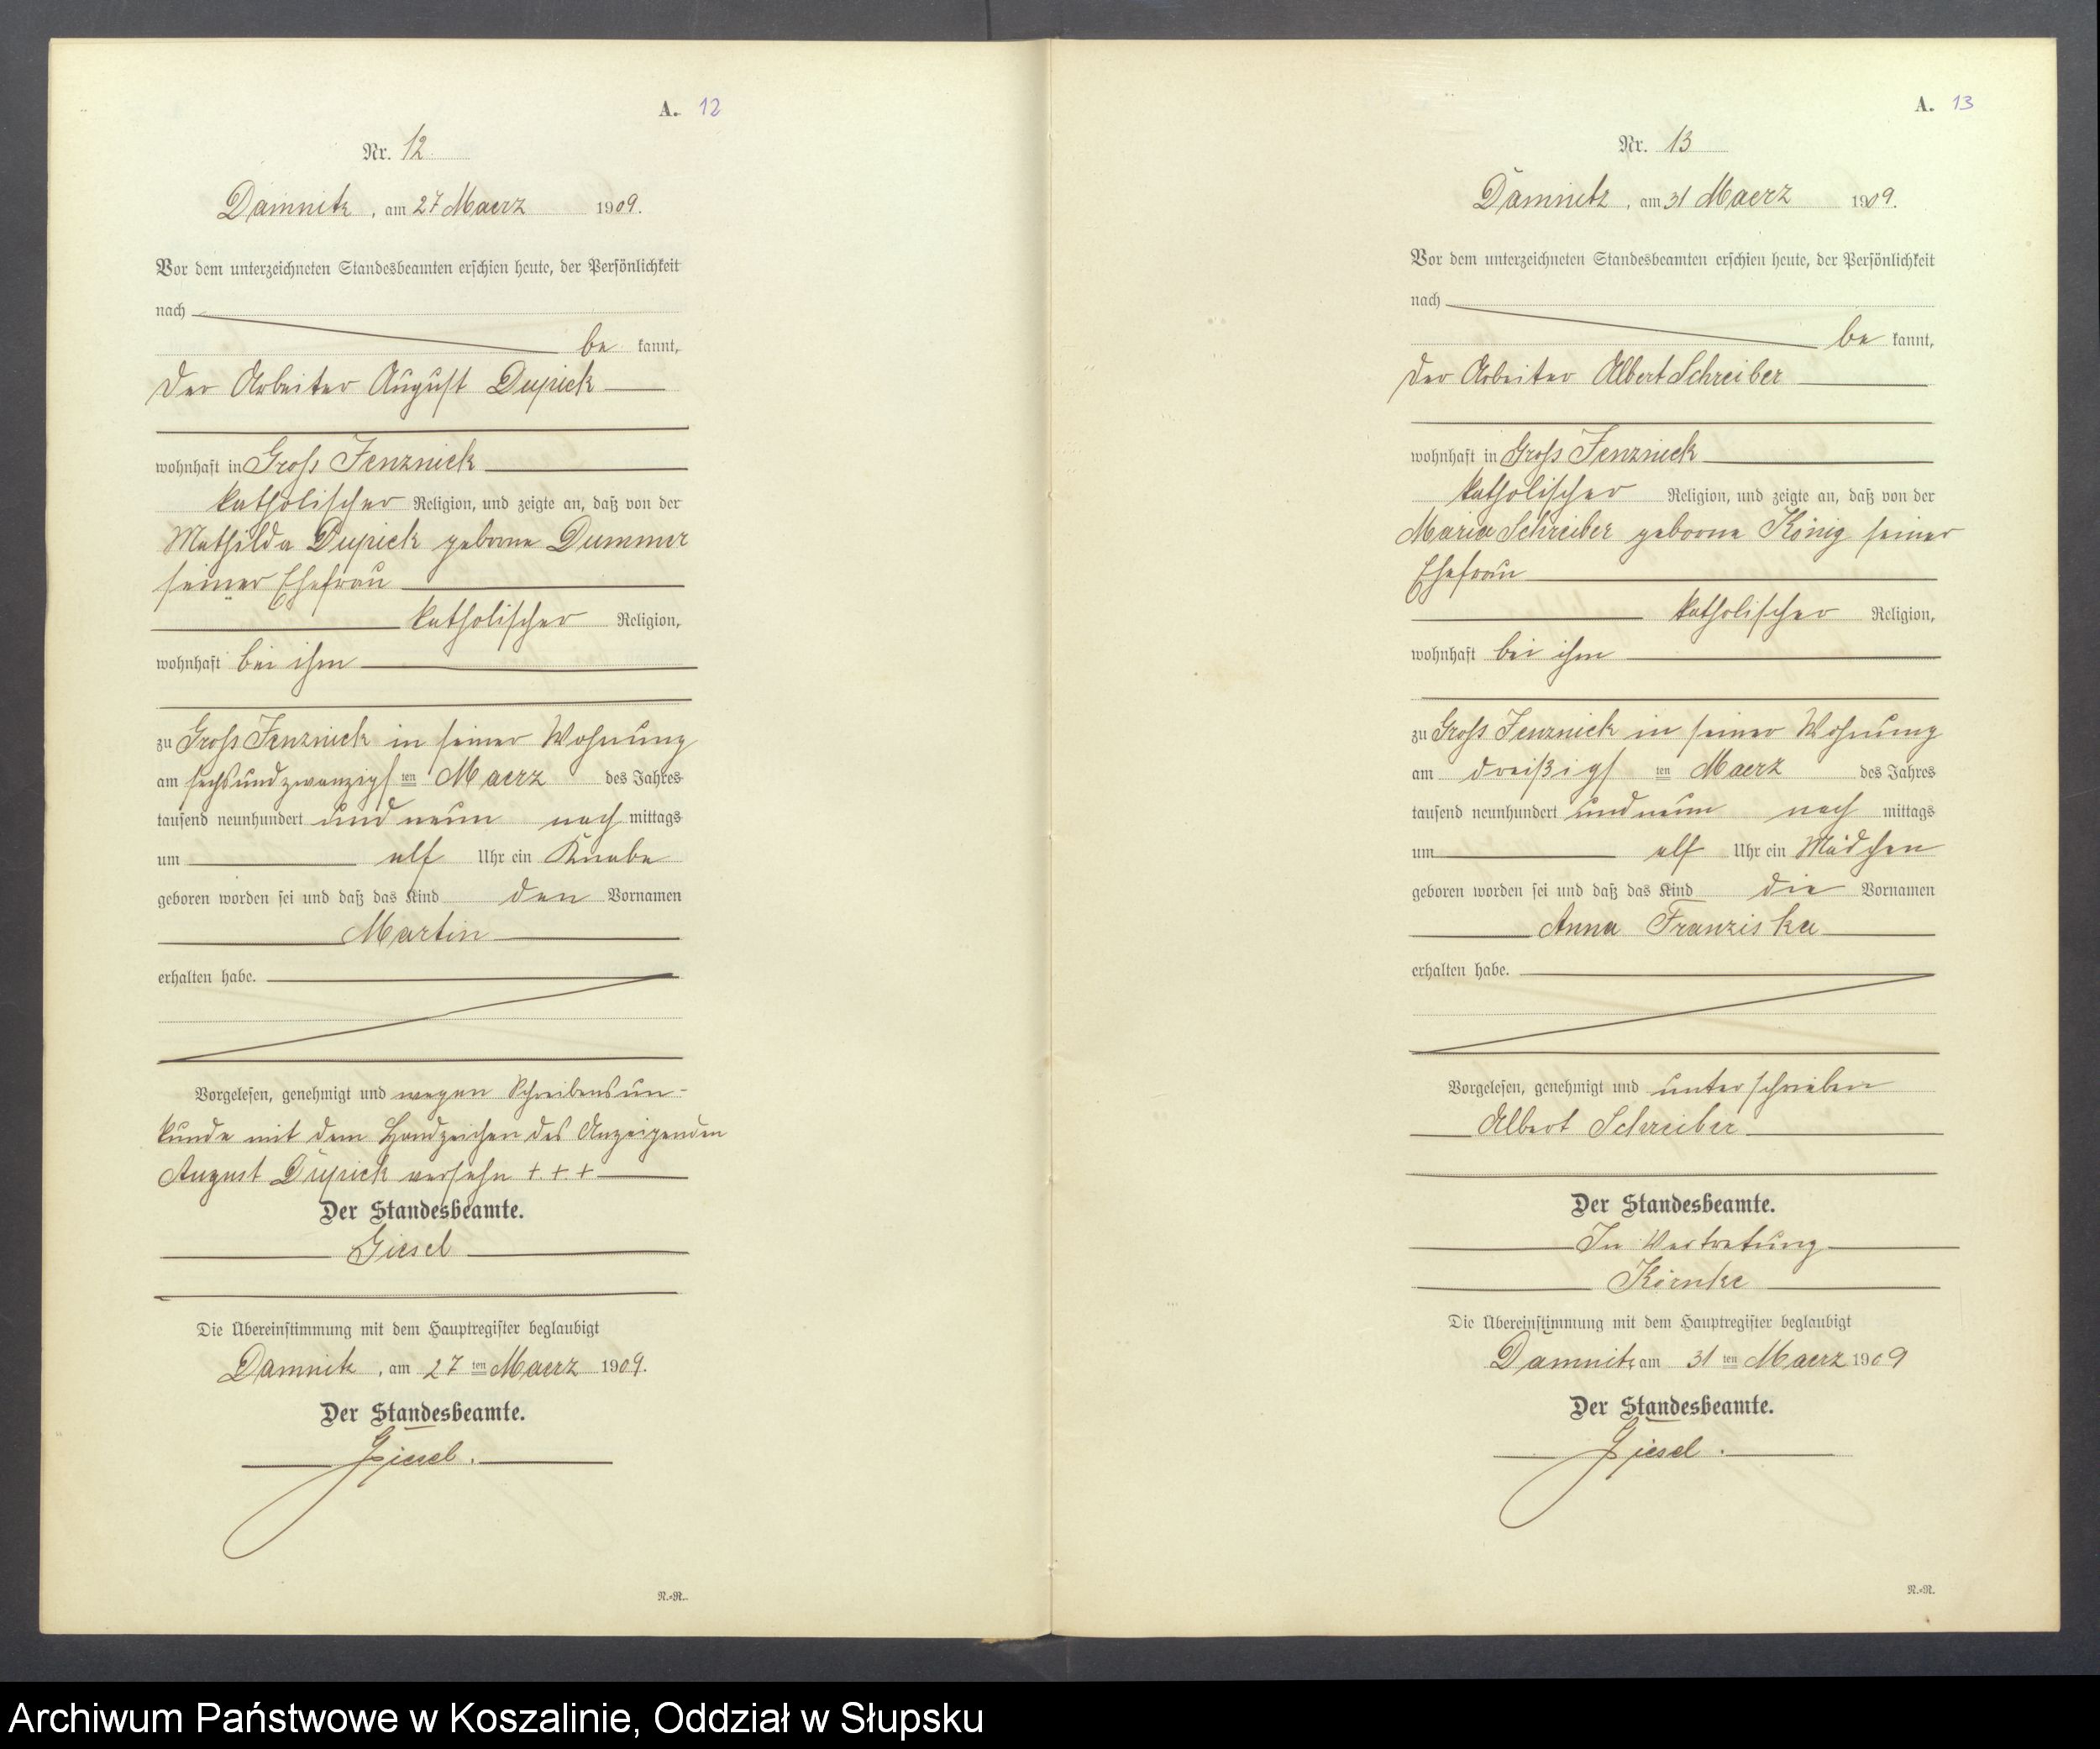 A. 12
Nr. 12
Damnitz, am 27 Maerz 1909.
Vor dem unterzeichneten Standesbeamten erschien heute, der Persönlichkeit
nach
be kannt,
der Arbeiter August Dupick
wohnhaft in Gross Jenznick
katholischer Religion, und zeigte an, daß von der
Mathilda Dupick geborne Dummer
seiner Ehefrau
katholischer Religion,
wohnhaft bei ihm
zu Gross Jenznick in seiner Wohnung
am sechsundzwanzigsten Maerz des Jahres
tausend neunhundert und neun nach mittags
um elf Uhr ein Knabe
geboren worden sei und daß das Kind den Vornamen
Martin
erhalten habe.
Vorgelesen, genehmigt und wegen Schreibensun-
kunde mit dem Handzeichen des Anzeigenden
August Dupick versehn + + +
Der Standesbeamte.
Giesel
Die Übereinstimmung mit dem Hauptregister beglaubigt
Damnitz, am 27 ten Maerz 1909.
Der Standesbeamte.
Giesel.
N.=R..
A. 13
Nr. 13
Damnitz, am 31 Maerz 1909.
Vor dem unterzeichneten Standesbeamten erschien heute, der Persönlichkeit
nach
be kannt,
der Arbeiter Albert Schreiber
wohnhaft in Gross Jenznick
katholischer Religion, und zeigte an, daß von der
Maria Schreiber geborne König seiner
Ehefrau
katholischer Religion,
wohnhaft bei ihm
zu Gross Jenznick in seiner Wohnung
am dreißigsten Maerz des Jahres
tausend neunhundert und neun nach mittags
um elf Uhr ein Mädchen
geboren worden sei und daß das Kind die Vornamen
Anna Franziska
erhalten habe.
Vorgelesen, genehmigt und unterschrieben
Albert Schreiber
Der Standesbeamte.
In Vertretung
Die Übereinstimmung mit dem Hauptregister beglaubigt
Damnitz am 31 ten Maerz 1909
Der Standesbeamte.
Giesel.
N.=R.
Archiwum Państwowe w Koszalinie, Oddział w Słupsku